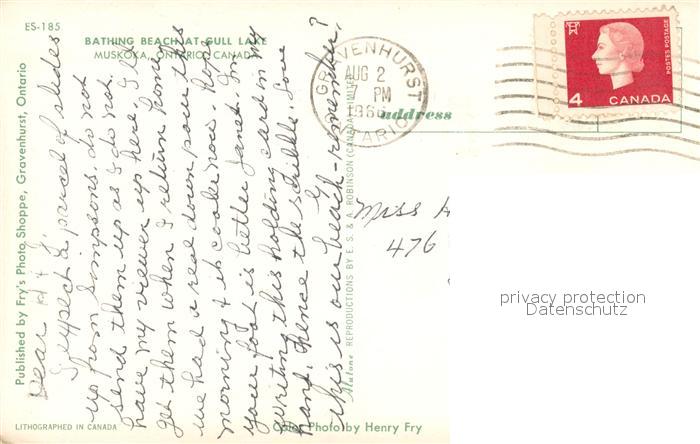 ES-185
BATHING BEACH AT GULL LAKE
MUSKOKA, ONTARIO, CANADA
Published by Fry's Photo Shoppe, Gravenhurst, Ontario
Dear H + J,
I expect a parcel of slides
up from Simpsons, do not
send them up as I do not
have my viewer up here, I'll
get them when I return home,
we had a real down pour this
morning & it is cooler now. hope
your foot is better Janet. I'm
writing this holding card in my
hand, hence the scribble. Love
This is our beach - remember?
G
LITHOGRAPHED IN CANADA
Color Photo by Henry Fry
Alulone REPRODUCTIONS BY E. S. & A. ROBINSON (CANADA) LIMITED
GRAVENHURST
AUG 2
7 PM
ONTARIO
address
4 CANADA
POSTES POSTAGE
Miss
476
privacy protection
Datenschutz